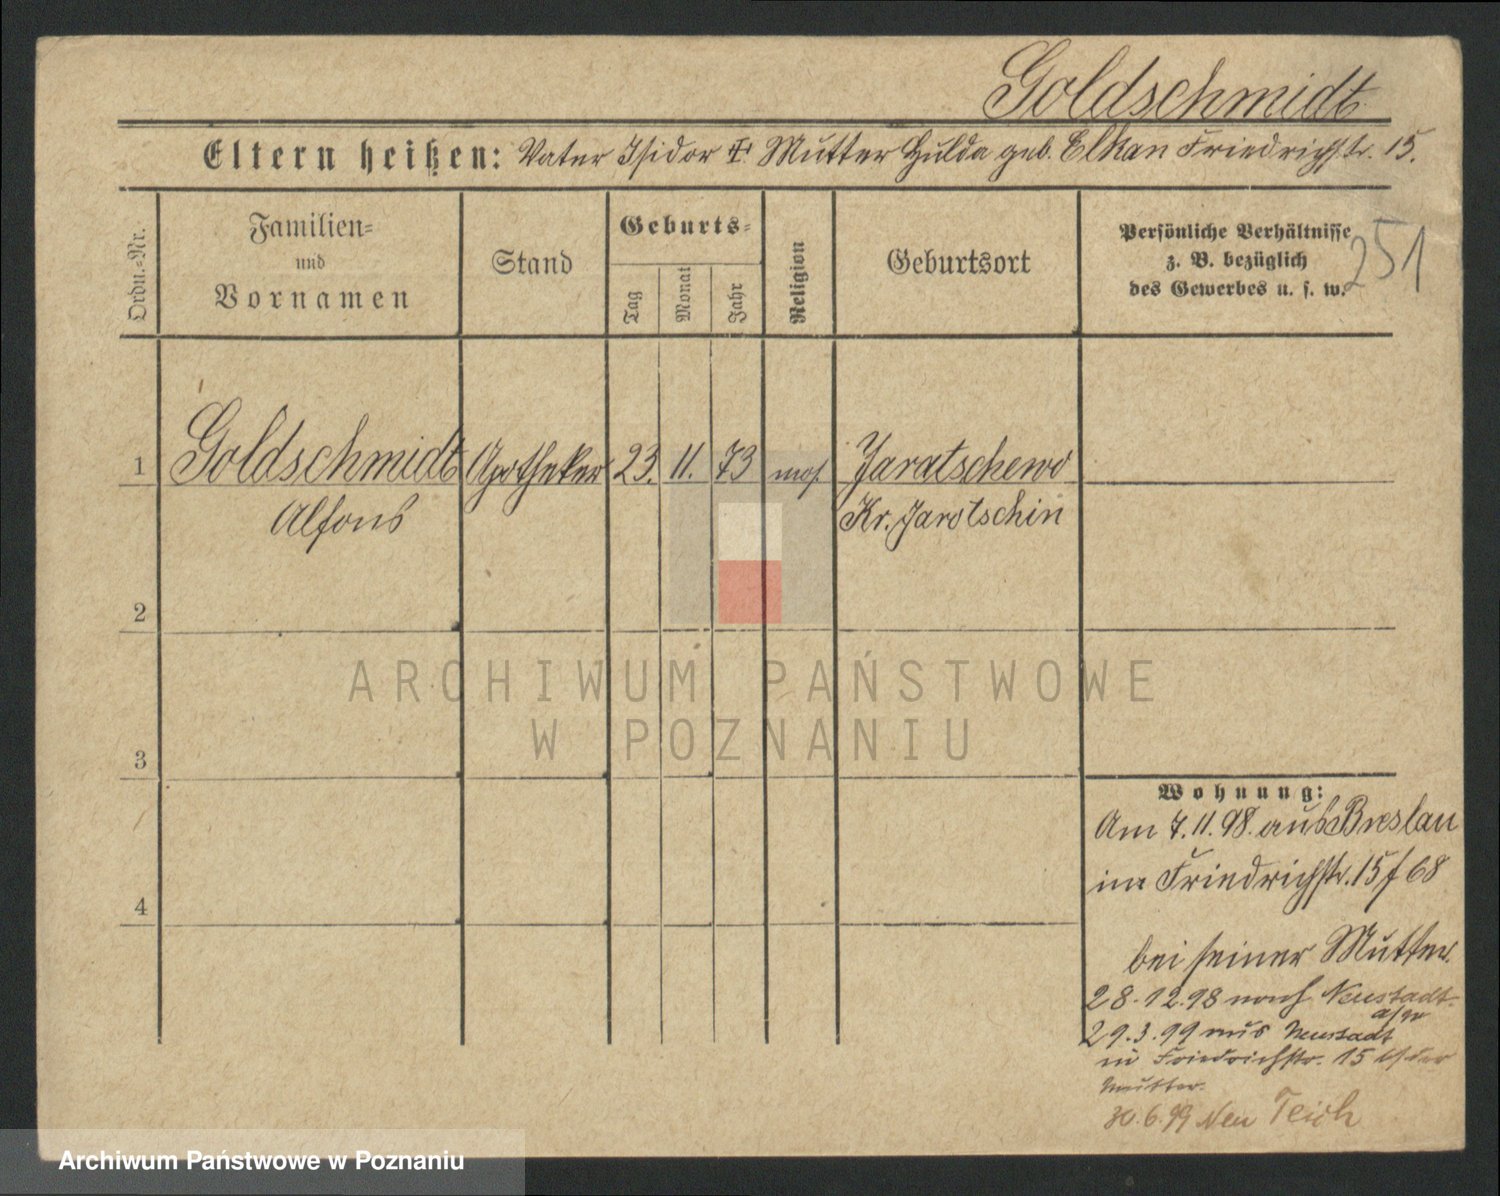 Goldschmidt
Eltern heißen: Vater Isidor † Mutter Hulda geb. Elkan Friedrichstr. 15.
Ordn.-Nr.
Familien-
und
Vornamen
Stand
Geburts-
Tag
Monat
Jahr
Religion
Geburtsort
Persönliche Verhältnisse
z. B. bezüglich
des Gewerbes u. s. w.
251
1 Goldschmidt Apotheker 23. 11. 73 mos. Jaratschewo
Alfons Kr. Jarotschin
2
3
4
Wohnung:
Am 7.11.98. aus Breslau
in Friedrichstr. 15 / 68
bei seiner Mutter.
28.12.98 nach Neustadt
29.3.99 aus Neustadt
in Friedrichstr. 15 der
Mutter.
30.6.99 Neu Teich
ARCHIWUM PAŃSTWOWE
W POZNANIU
Archiwum Państwowe w Poznaniu